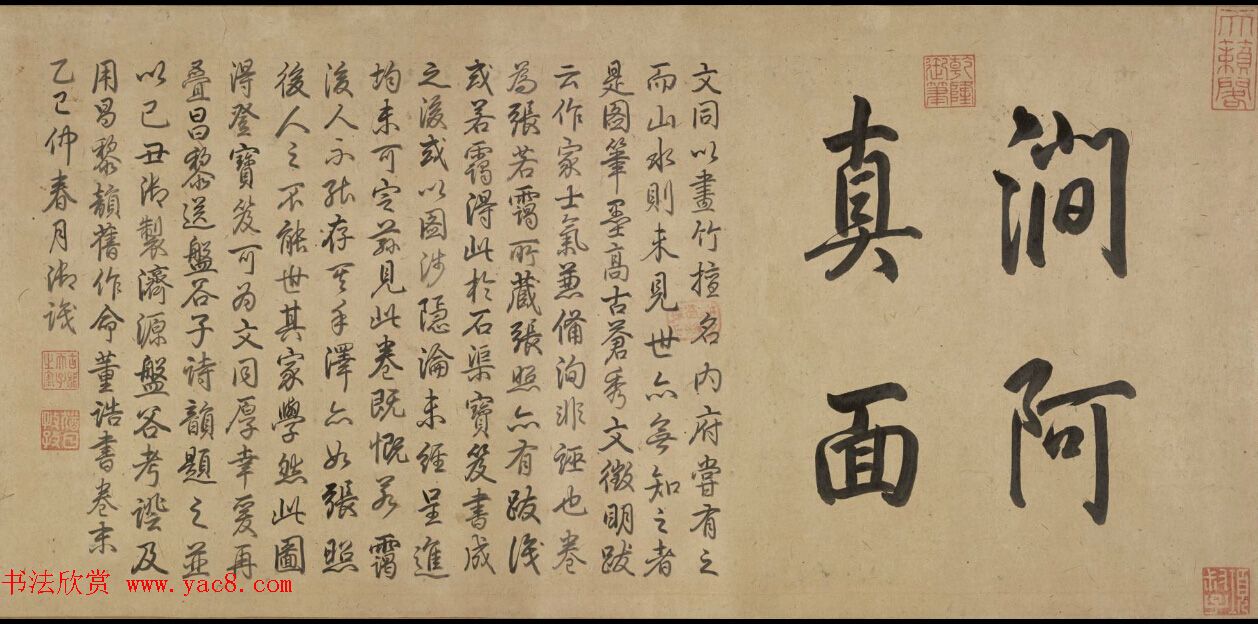 天籟閣
乾隆御筆
澗阿
真面
文同以畫竹擅名內府嘗有之
而山水則未見世亦無知之者
是圖筆墨高古蒼秀文徵明跋
云作家士氣兼備洵非誣也卷
為張若靄所藏張照亦有跋識
或若靄得此於石渠寶笈書成
之後或以圖涉隱淪未經呈進
均未可定茲見此卷既慨若靄
後人不能存其手澤亦如張照
後人之不能世其家學然此圖
得登寶笈可為文同厚幸爰再
疊昌黎送盤谷子詩韻題之並
以己丑御製濟源盤谷考證及
用昌黎韻舊作命董誥書卷末
乙巳仲春月御識
书法欣赏 www.yac8.com